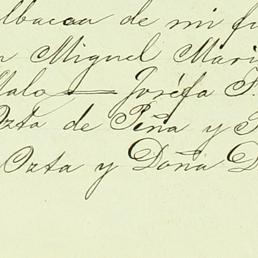 lbacea de mi fi
n Miguel Mari
llalo — Joséfa S.
Ozta de Piña y S
Ozta y Doña D